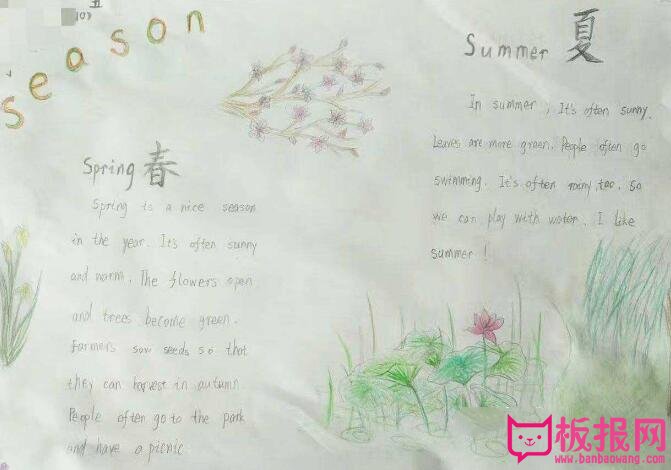 season
Spring 春
Spring is a nice season
in the year. It's often sunny
and warm. The flowers open
and trees become green.
Farmers sow seeds so that
they can harvest in autumn
People often go to the park
and have a picnic
Summer 夏
In summer, It's often sunny.
Leaves are more green. People often go
swimming. It's often rainy too. So
we can play with water. I like
summer!
板报网
www.banbaowang.com